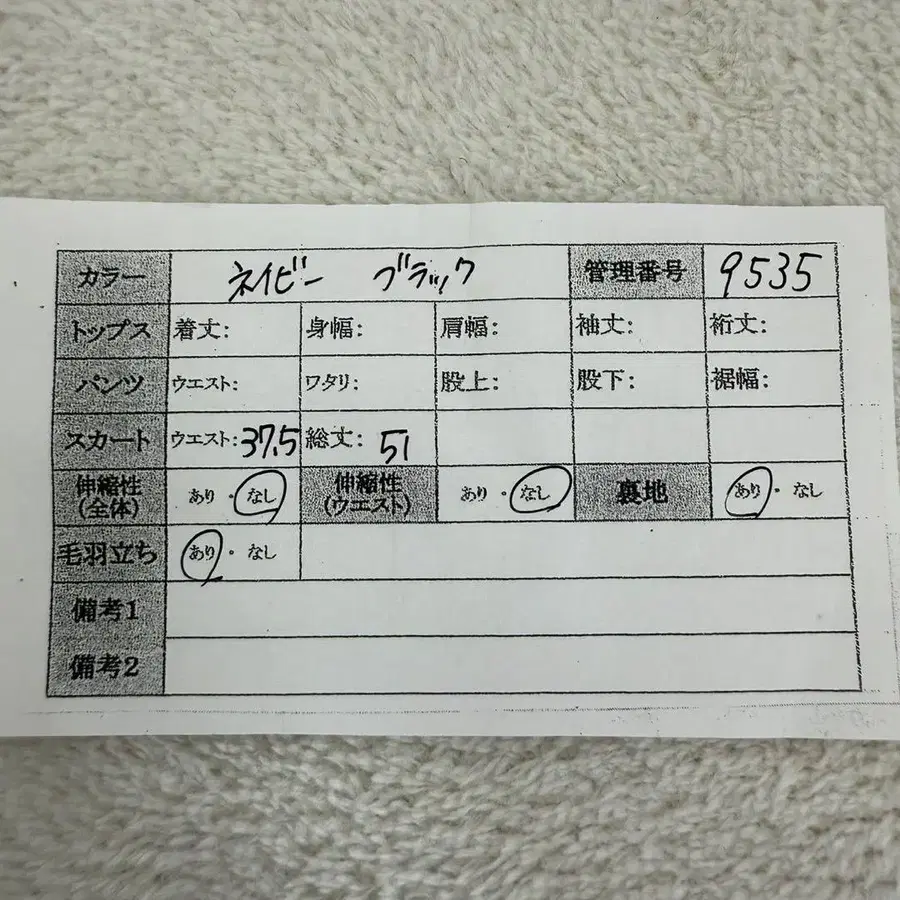 カラー ネイビー ブラック 管理番号 9535
トップス 着丈: 身幅: 肩幅: 袖丈: 裄丈:
パンツ ウエスト: ワタリ: 股上: 股下: 裾幅:
スカート ウエスト: 37.5 総丈: 51
伸縮性 (全体) あり・なし 伸縮性 (ウエスト) あり・なし 裏地 あり・なし
毛羽立ち あり・なし
備考1
備考2